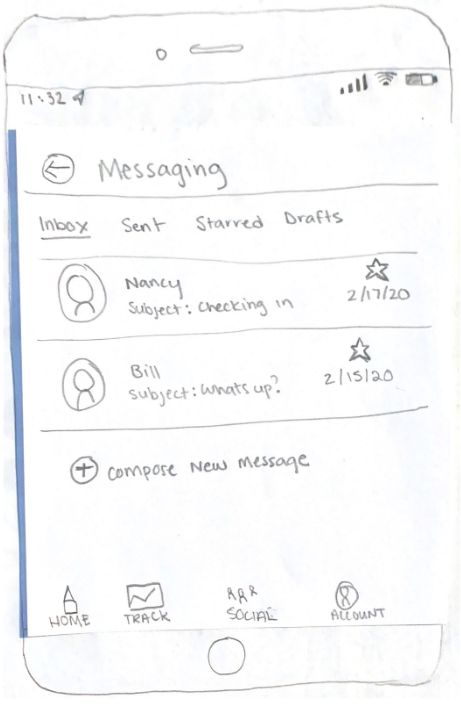 11:32
Messaging
Inbox Sent Starred Drafts
Nancy
Subject: Checking in
2/17/20
Bill
Subject: Whats up?
2/15/20
Compose New Message
HOME TRACK SOCIAL ACCOUNT